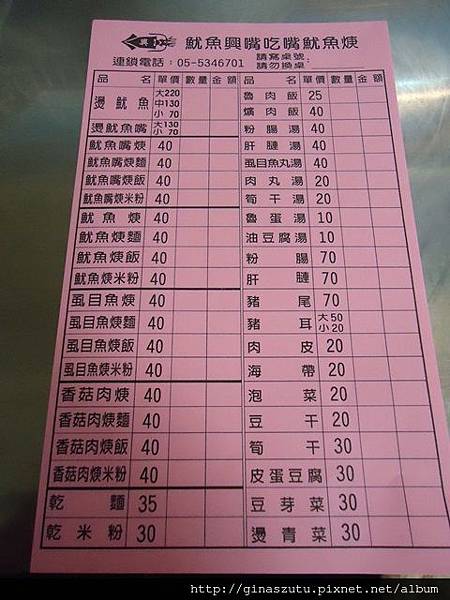 魷魚興嘴吃嘴魷魚焿
連鎖電話：05-5346701 請寫桌號：
請勿換桌
品名 單價 數量 金額 品名 單價 數量 金額
燙魷魚 大220 中130 小70
燙魷魚嘴 大130 小70
魷魚嘴焿 40
魷魚嘴焿麵 40
魷魚嘴焿飯 40
魷魚嘴焿米粉 40
魷魚焿 40
魷魚焿麵 40
魷魚焿飯 40
魷魚焿米粉 40
虱目魚焿 40
虱目魚焿麵 40
虱目魚焿飯 40
虱目魚焿米粉 40
香菇肉焿 40
香菇肉焿麵 40
香菇肉焿飯 40
香菇肉焿米粉 40
乾麵 35
乾米粉 30
魯肉飯 25
爌肉飯 40
粉腸湯 40
肝腱湯 40
虱目魚丸湯 40
肉丸湯 20
筍干湯 20
魯蛋湯 10
油豆腐湯 10
粉腸 70
肝腱 70
豬尾 70
豬耳 大50 小20
肉皮 20
海帶 20
泡菜 20
豆干 20
筍干 30
皮蛋豆腐 30
豆芽菜 30
燙青菜 30
http://ginaszutu.pixnet.net/album